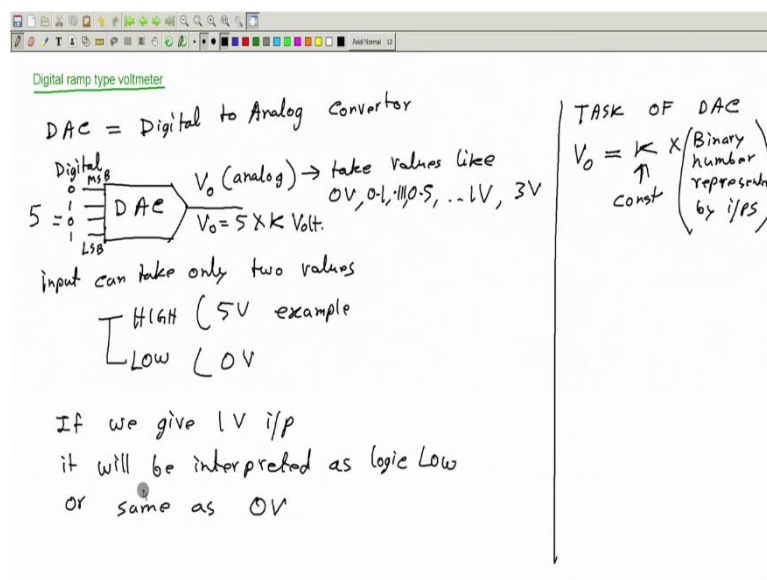 Arial Normal 12
Digital ramp type voltmeter
DAC = Digital to Analog Convertor
Digital
MSB
0
1
0
1
5 =
LSB
DAC
Vo (analog) → take values like
0V, 0.1, .111, 0.5, ... 1V, 3V
Vo = 5 X K Volt.
input can take only two values
HIGH ( 5V example
LOW ( 0V
If we give 1V i/p
it will be interpreted as logic Low
or same as 0V
TASK OF DAC
Vo = K X ( Binary
number
represented
by i/ps )
↑
const